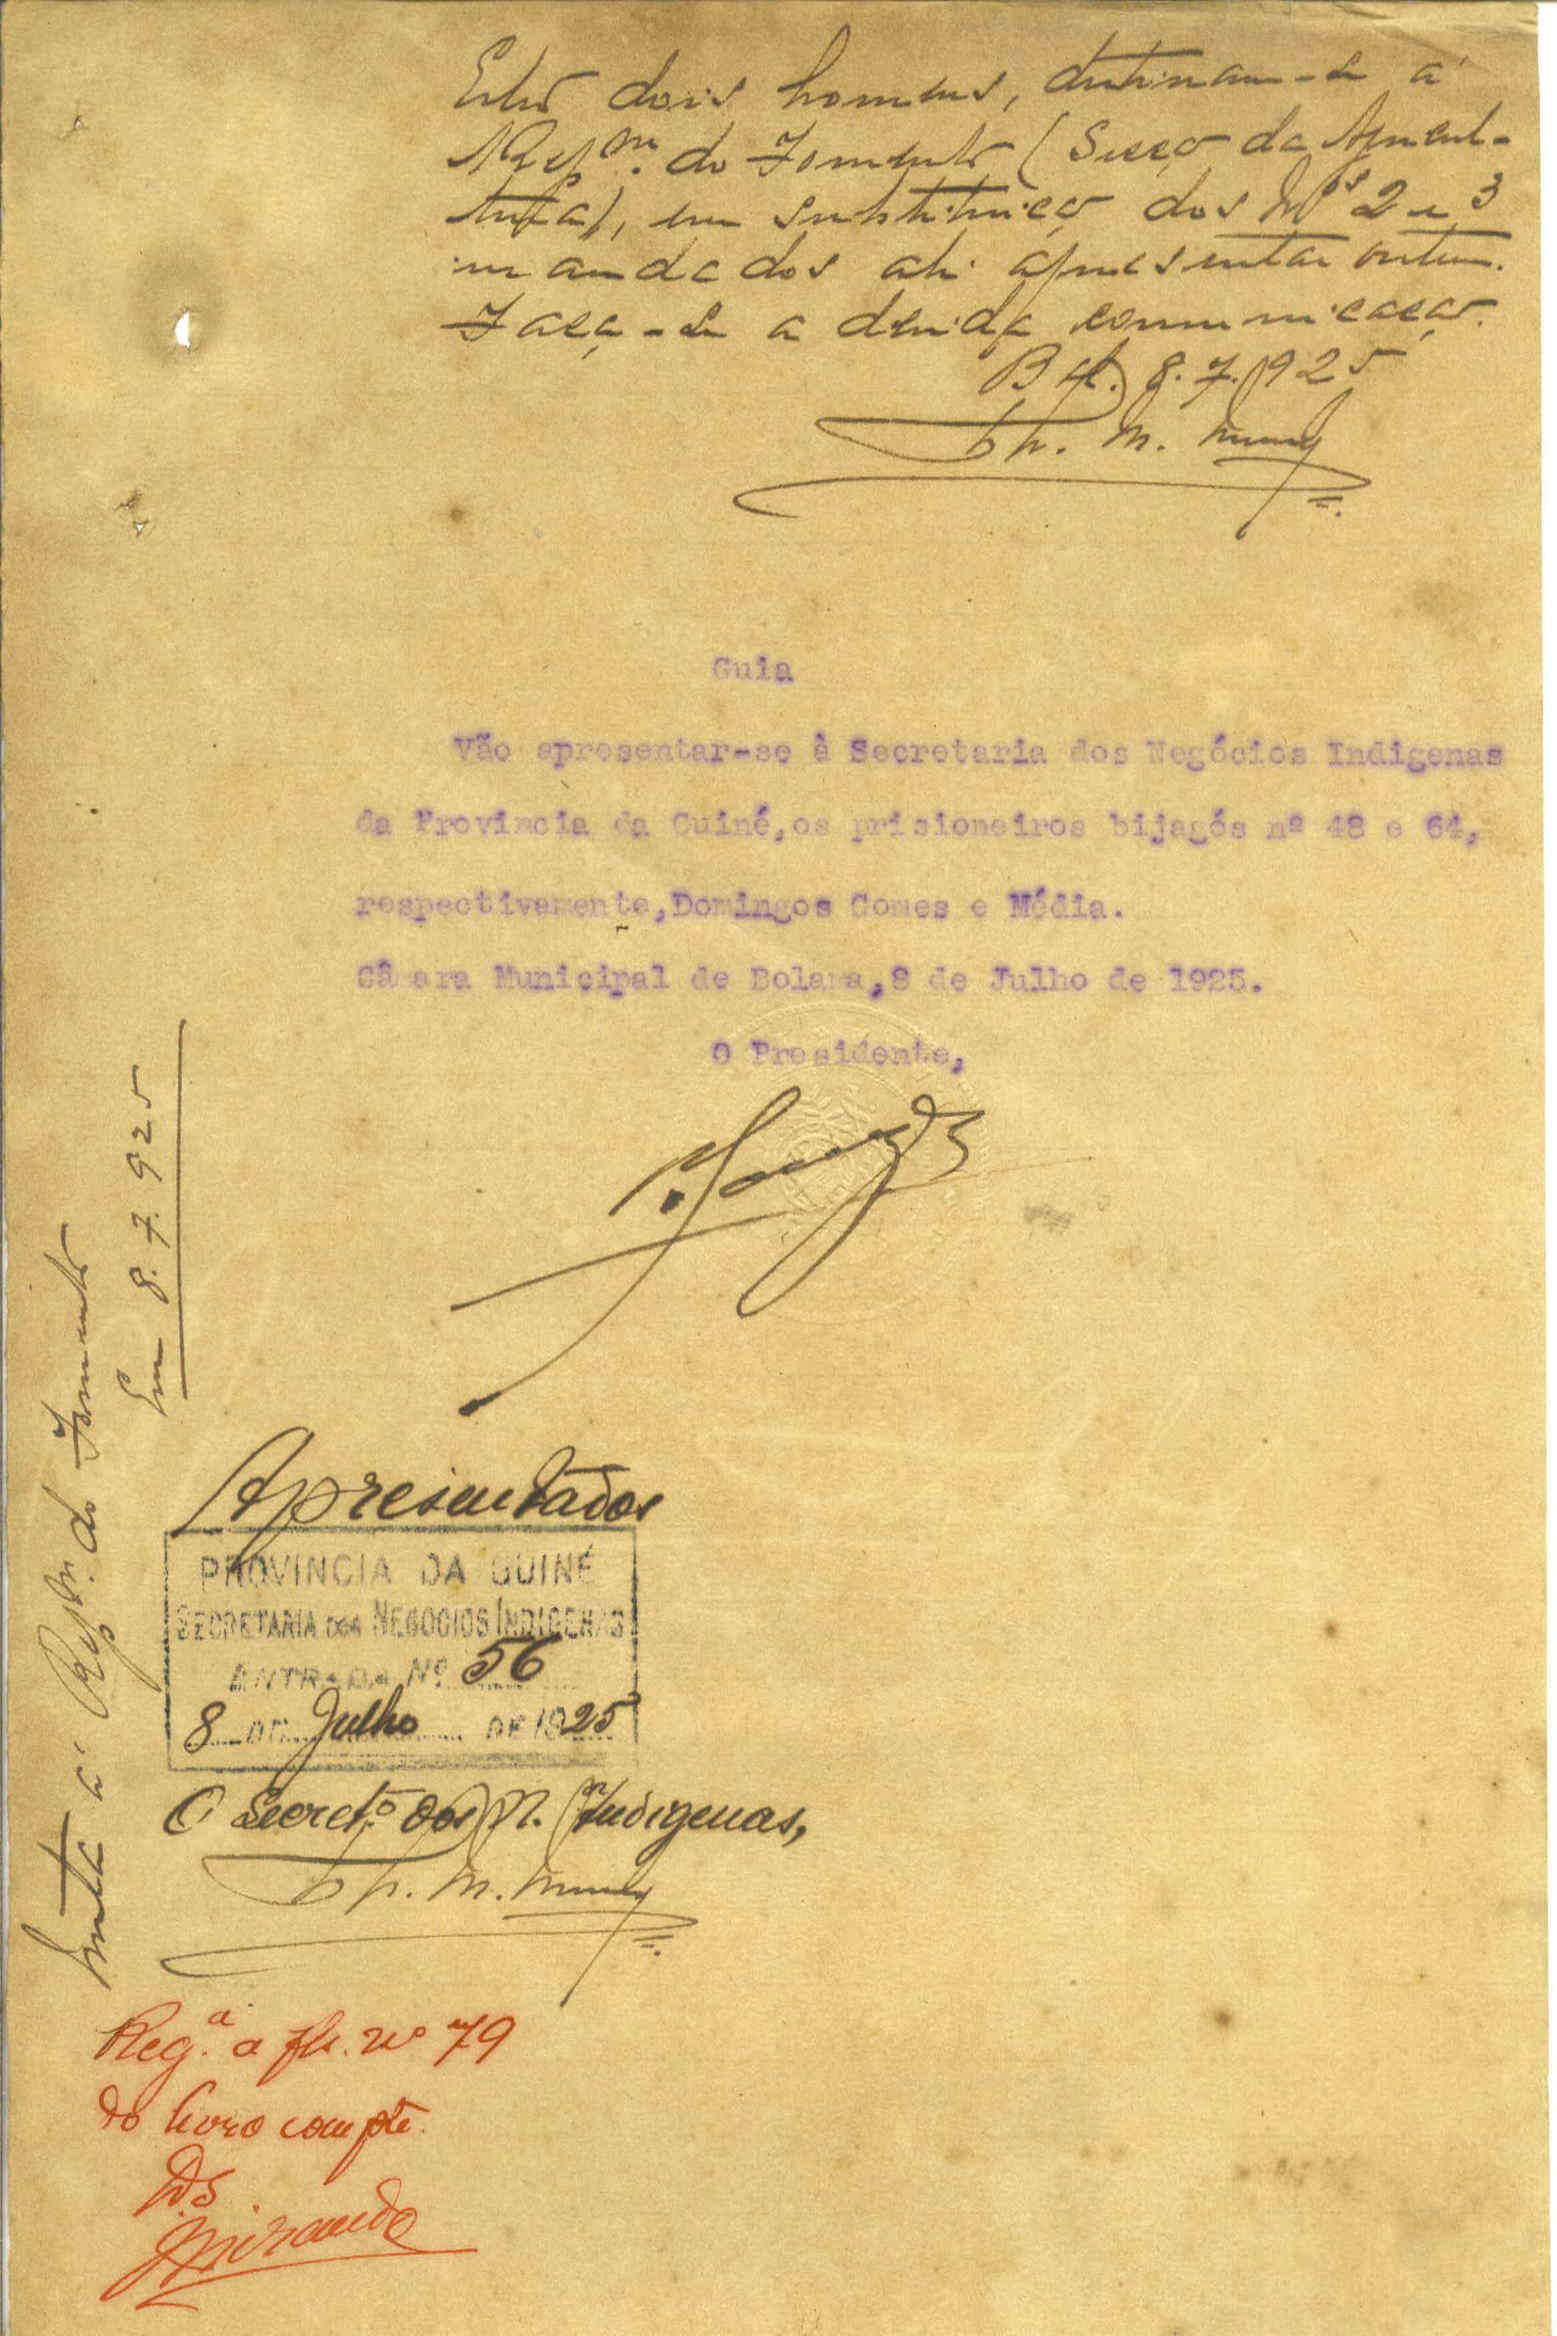 Estes dois homens, destinam-se á
Repm. do Fomento (Secção da Agricul-
tura), em substituição dos Nos 2 e 3
mandados ali apresentar ontem.
Faça-se a devida comunicação.
8.7.925
Guia
Vão apresentar-se à Secretaria dos Negócios Indigenas
da Provincia da Guiné,os prisioneiros bijagós nº 48 e 64,
respectivamente,Domingos Gomes e Média.
Câmara Municipal de Bolama,8 de Julho de 1925.
O Presidente,
Apresentados
PROVINCIA DA GUINÉ
SECRETARIA DOS NEGOCIOS INDIGENAS
ENTRADA Nº 56
8 DE Julho DE 1925
O Secretº dos N. Indigenas,
á Repm. do Fomento
Em 8.7.925
Reg.a a fls. nº 79
do livro compte.
Miranda